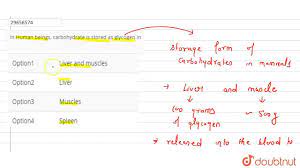 29656574
In Human beings, carbohydrate is stored as glycogen in
Option1 Liver and muscles
Option2 Liver
Option3 Muscles
Option4 Spleen
Storage form of
Carbohydrates in mammals
Liver and muscle
100 grams
of glycogen
500g
released into the blood
doubtnut